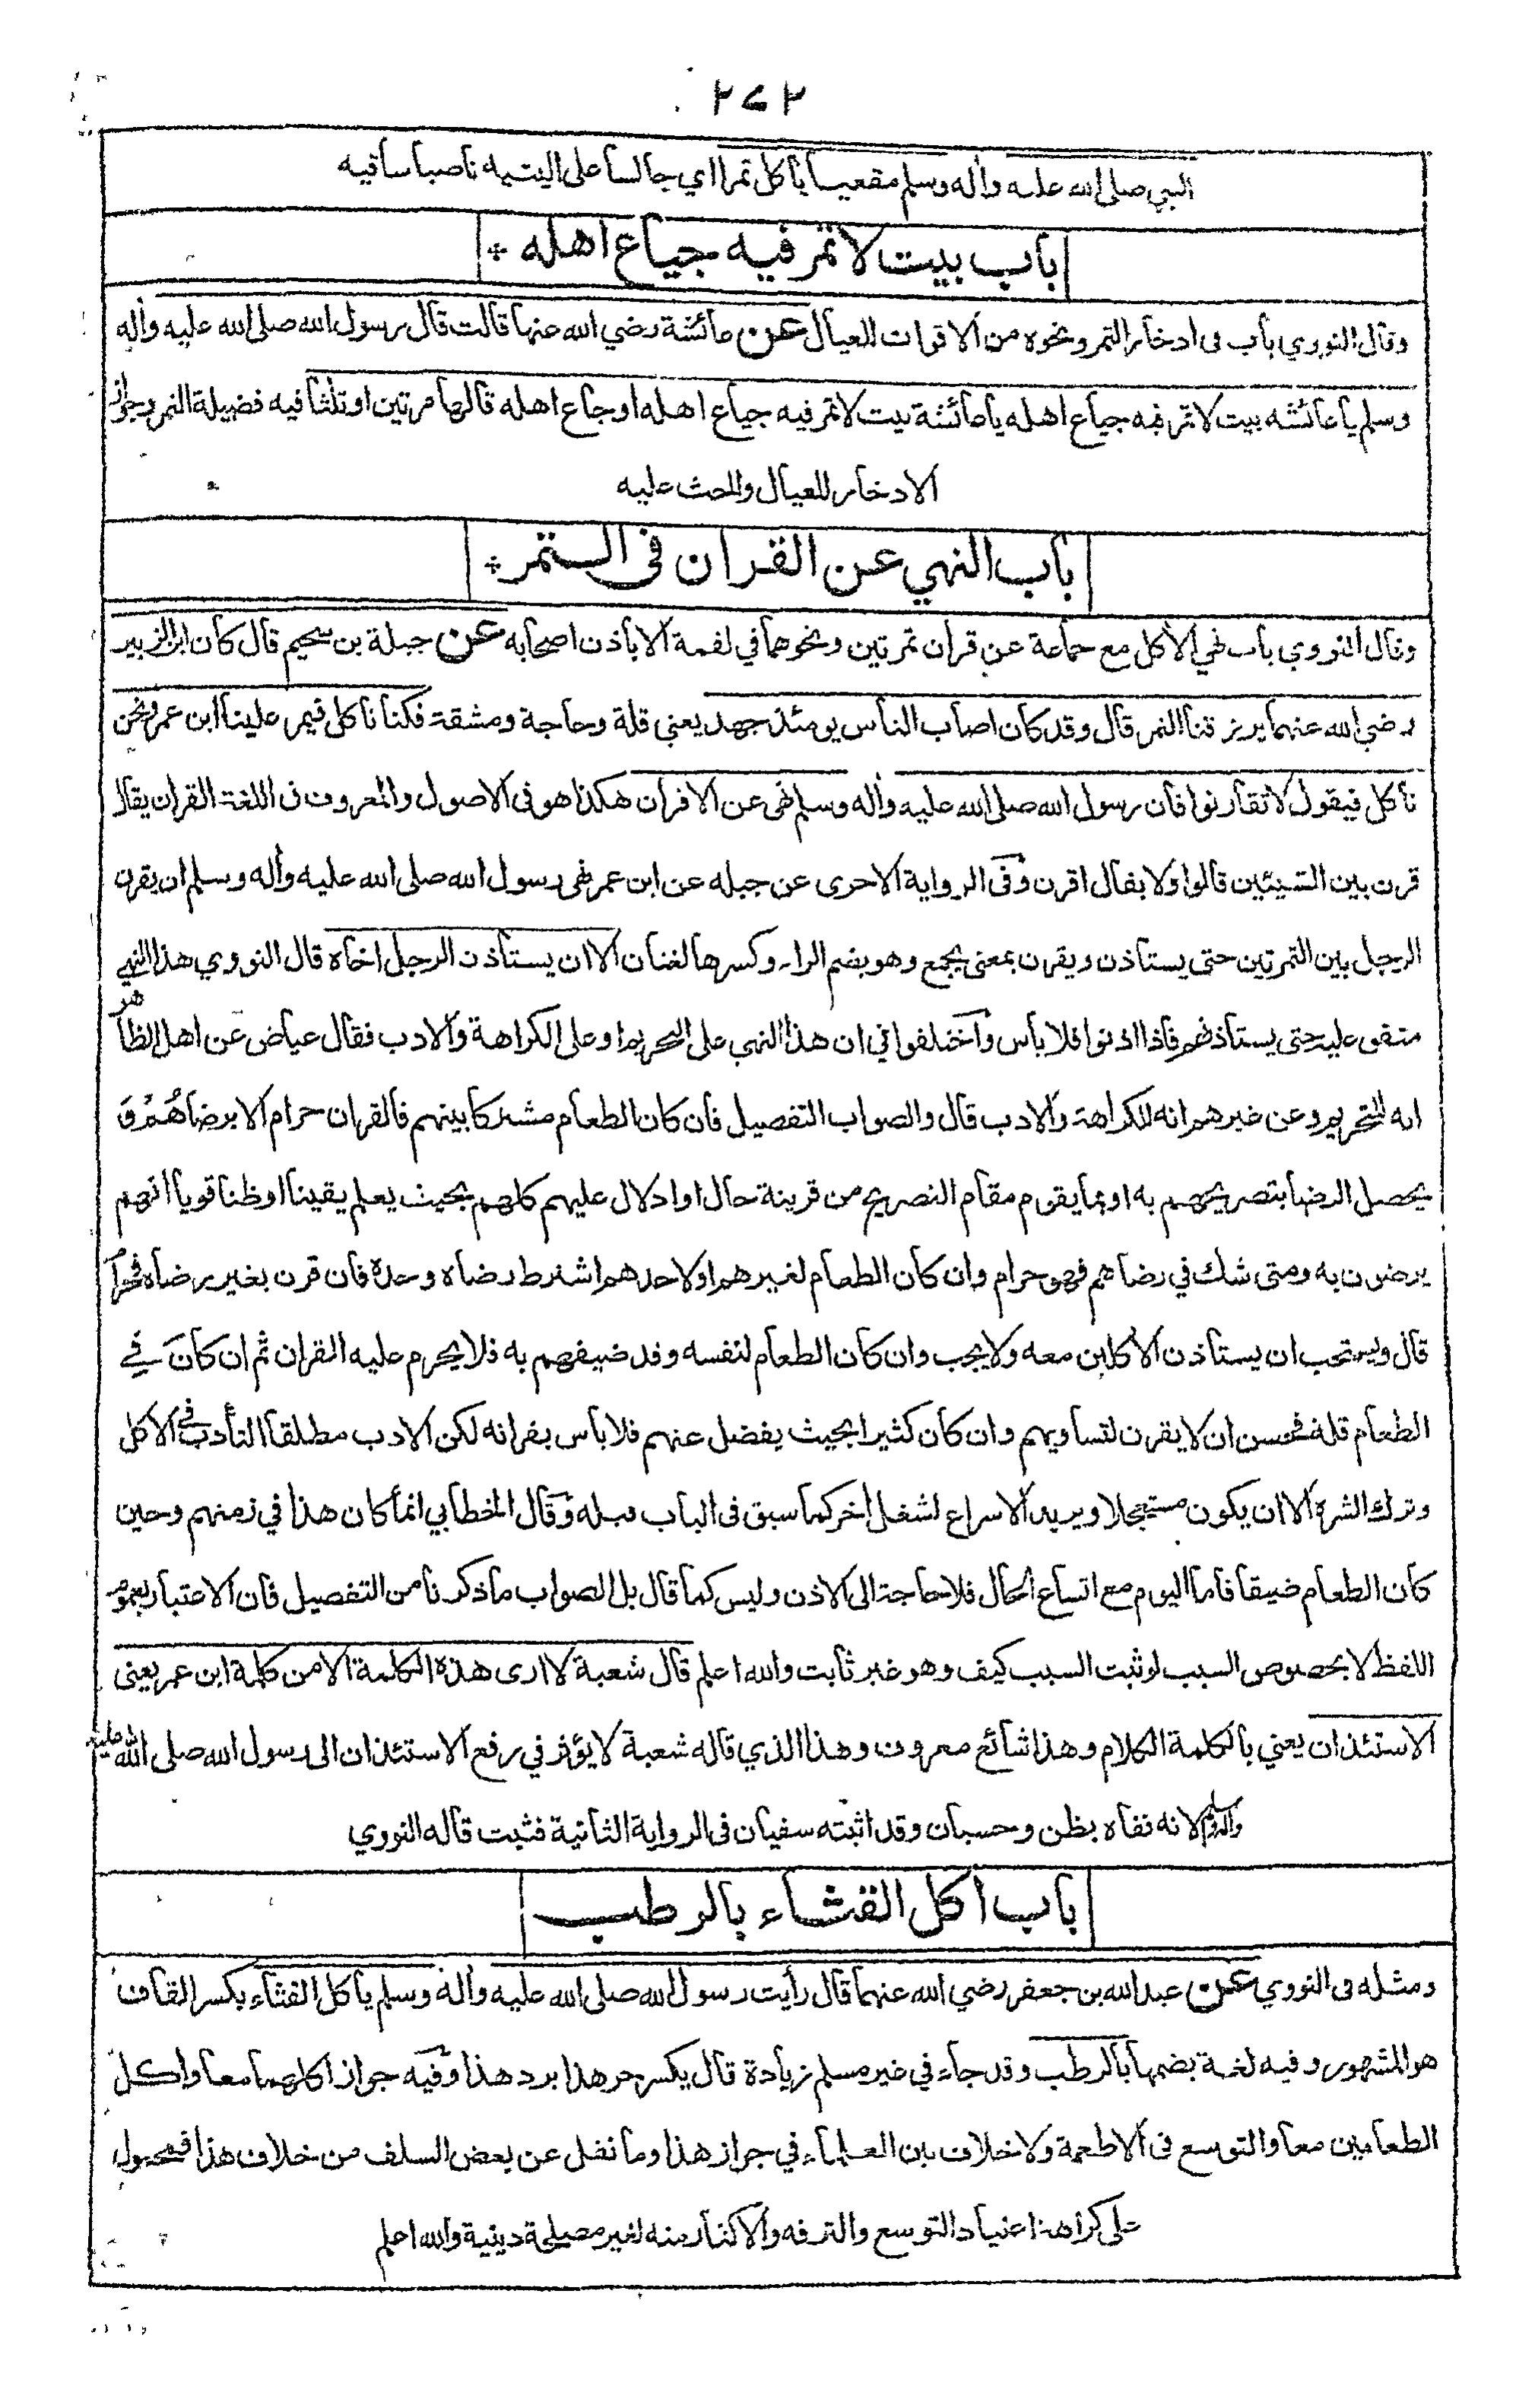 ٢٧٢
النبي صلى الله عليه واٰله وسلم مقعيا يأكل تمرا اي جالسا على اليتيه ناصبا ساقيه
باب بيت لا تمر فيه جياع اهله *
وقال النووي باب فى ادخار التمر ونحوه من الاقوات للعيال عن عائشة رضي الله عنها قالت قال رسول الله صلى الله عليه واٰله
وسلم يا عائشه بيت لا تمر فيه جياع اهله يا عائشة بيت لا تمر فيه جياع اهله او جاع اهله قالها مرتين او ثلثا فيه فضيلة التمر وجواز
الادخار للعيال والحث عليه
باب النهي عن القران فى التمر *
وقال النووي باب نهي الأكل مع جماعة عن قران تمرتين ونحوهما في لقمة الا باذن اصحابه عن جبلة بن سحيم قال كان ابن الزبير
رضي الله عنهما يرزقنا التمر قال وقد كان اصاب الناس يومئذ جهد يعني قلة وحاجة ومشقة فكنا نأكل فيمر علينا ابن عمر ونحن
نأكل فيقول لا تقارنوا فان رسول الله صلى الله عليه واٰله وسلم نهى عن الاقران هكذا هو فى الاصول والمعروف فى اللغة القران يقال
قرن بين الشيئين قالوا ولا يقال اقرن وفى الرواية الاخرى عن جبله عن ابن عمر نهى رسول الله صلى الله عليه واٰله وسلم ان يقرن
الرجل بين التمرتين حتى يستاذن ويقرن بمعنى يجمع وهو بضم الراء وكسرها لغتان الا ان يستأذن الرجل اخاه قال النووي هذا النهي
متفق عليه حتى يستأذنهم فاذا اذنوا فلا بأس واختلفوا في ان هذا النهي على التحريم او على الكراهة والادب فقال عياض عن اهل الظاهر
انه للتحريم وعن غيرهم انه للكراهة والادب قال والصواب التفصيل فان كان الطعام مشتركا بينهم فالقران حرام الا برضاهُمْ وَ
يحصل الرضا بتصريحهم به او بما يقوم مقام التصريح من قرينة حال او ادلال عليهم كلهم بحيث يعلم يقينا او ظنا قويا انهم
يرضون به ومتى شك في رضاهم فهو حرام وان كان الطعام لغيرهم او لاحدهم اشترط رضاه وحدة فان قرن بغير رضاه فحرام
قال ويستحب ان يستاذن الاكلين معه ولا يجب وان كان الطعام لنفسه وقد ضيفهم به فلا يحرم عليه القران ثم ان كان في
الطعام قلة فحسن ان لا يقرن لتساويهم وان كان كثيرا بحيث يفضل عنهم فلا بأس بقرانه لكن الادب مطلقا التأدب في الاكل
وترك الشره الا ان يكون مستعجلا ويريد الاسراع لشغل اٰخر كما سبق فى الباب قبله وقال الخطابي انما كان هذا في زمنهم وحين
كان الطعام ضيقا فاما اليوم مع اتساع الحال فلا حاجة الى الاذن وليس كما قال بل الصواب ما ذكرنا من التفصيل فان الاعتبار بعموم
اللفظ لا بخصوص السبب لو ثبت السبب كيف وهو غير ثابت والله اعلم قال شعبة لا ارى هذه الكلمة الا من كلمة ابن عمر يعنى
الاستئذان يعني بالكلمة الكلام وهذا شائع معروف وهذا الذي قاله شعبة لا يؤثر في رفع الاستئذان الى رسول الله صلى الله عليه
واٰله وسلم لانه نفاه بظن وحسبان وقد اثبته سفيان فى الرواية الثانية فثبت قاله النووي
باب اكل القثاء بالرطب
ومثله فى النووي عن عبد الله بن جعفر رضي الله عنهما قال رأيت رسول الله صلى الله عليه واٰله وسلم يأكل القثاء بكسر القاف
هو المشهور وفيه لغة بضمها بالرطب وقد جاء في غير مسلم زيادة قال يكسر حر هذا برد هذا وفيه جواز اكلهما معا واكل
الطعامين معا والتوسع فى الاطعمة ولا خلاف بين العلماء في جواز هذا وما نقل عن بعض السلف من خلاف هذا فمحمول
على كراهة اعتياد التوسع والترفه والاكثار منه لغير مصلحة دينية والله اعلم